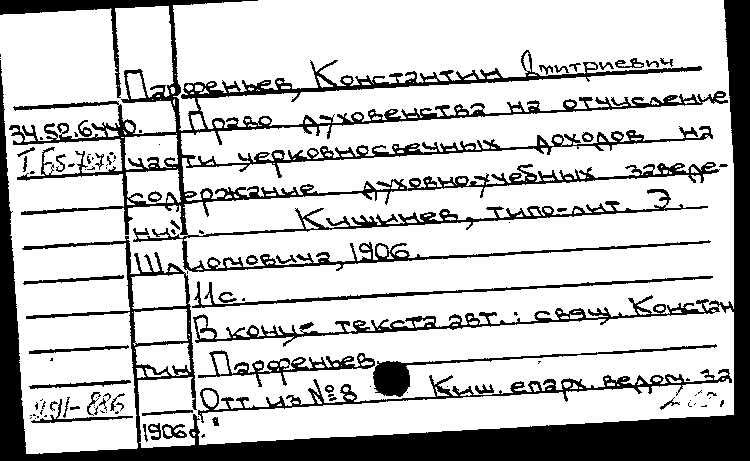 Парфеньев, Константин Дмитриевич
34.52.6440. Право духовенства на отчисление
I.Б5-7878 части церковносвечных доходов на
содержание духовно-учебных заведе-
ний. Кишинев, типо-лит. Э.
Шлиомовича, 1906.
11с.
В конце текста авт.: свящ. Констан
тин Парфеньев.
Отт. из №8 Киш. епарх. ведом. за
291-886
1906г."